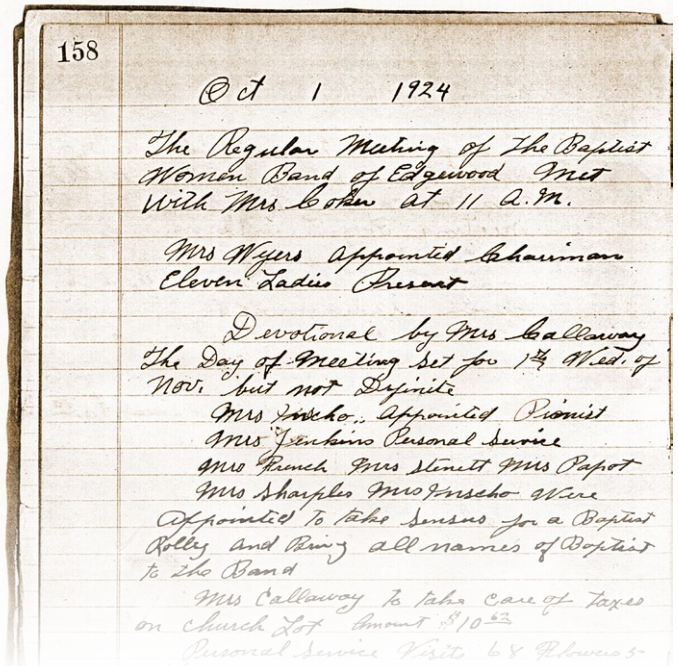 158
Oct 1 1924
The Regular Meeting of the Baptist
Women Band of Edgewood Met
with Mrs Coker at 11 A.M.
Mrs Wyers appointed Chairman
Eleven Ladies Present
Devotional by Mrs Callaway
The Day of Meeting set for 1st Wed. of
Nov. but not Definite
Mrs Inscho, Appointed Pionist
Mrs Jenkins Personal Service
Mrs Mrs Stinett Mrs Papot
Mrs Sharples Mrs Inscho Were
Appointed to take sensus for a Baptist
and Bring all names of Baptist
to the Band
Mrs Callaway to take care of taxes
on church Lot Amount $10
Personal Service Visits 68 Flowers 5